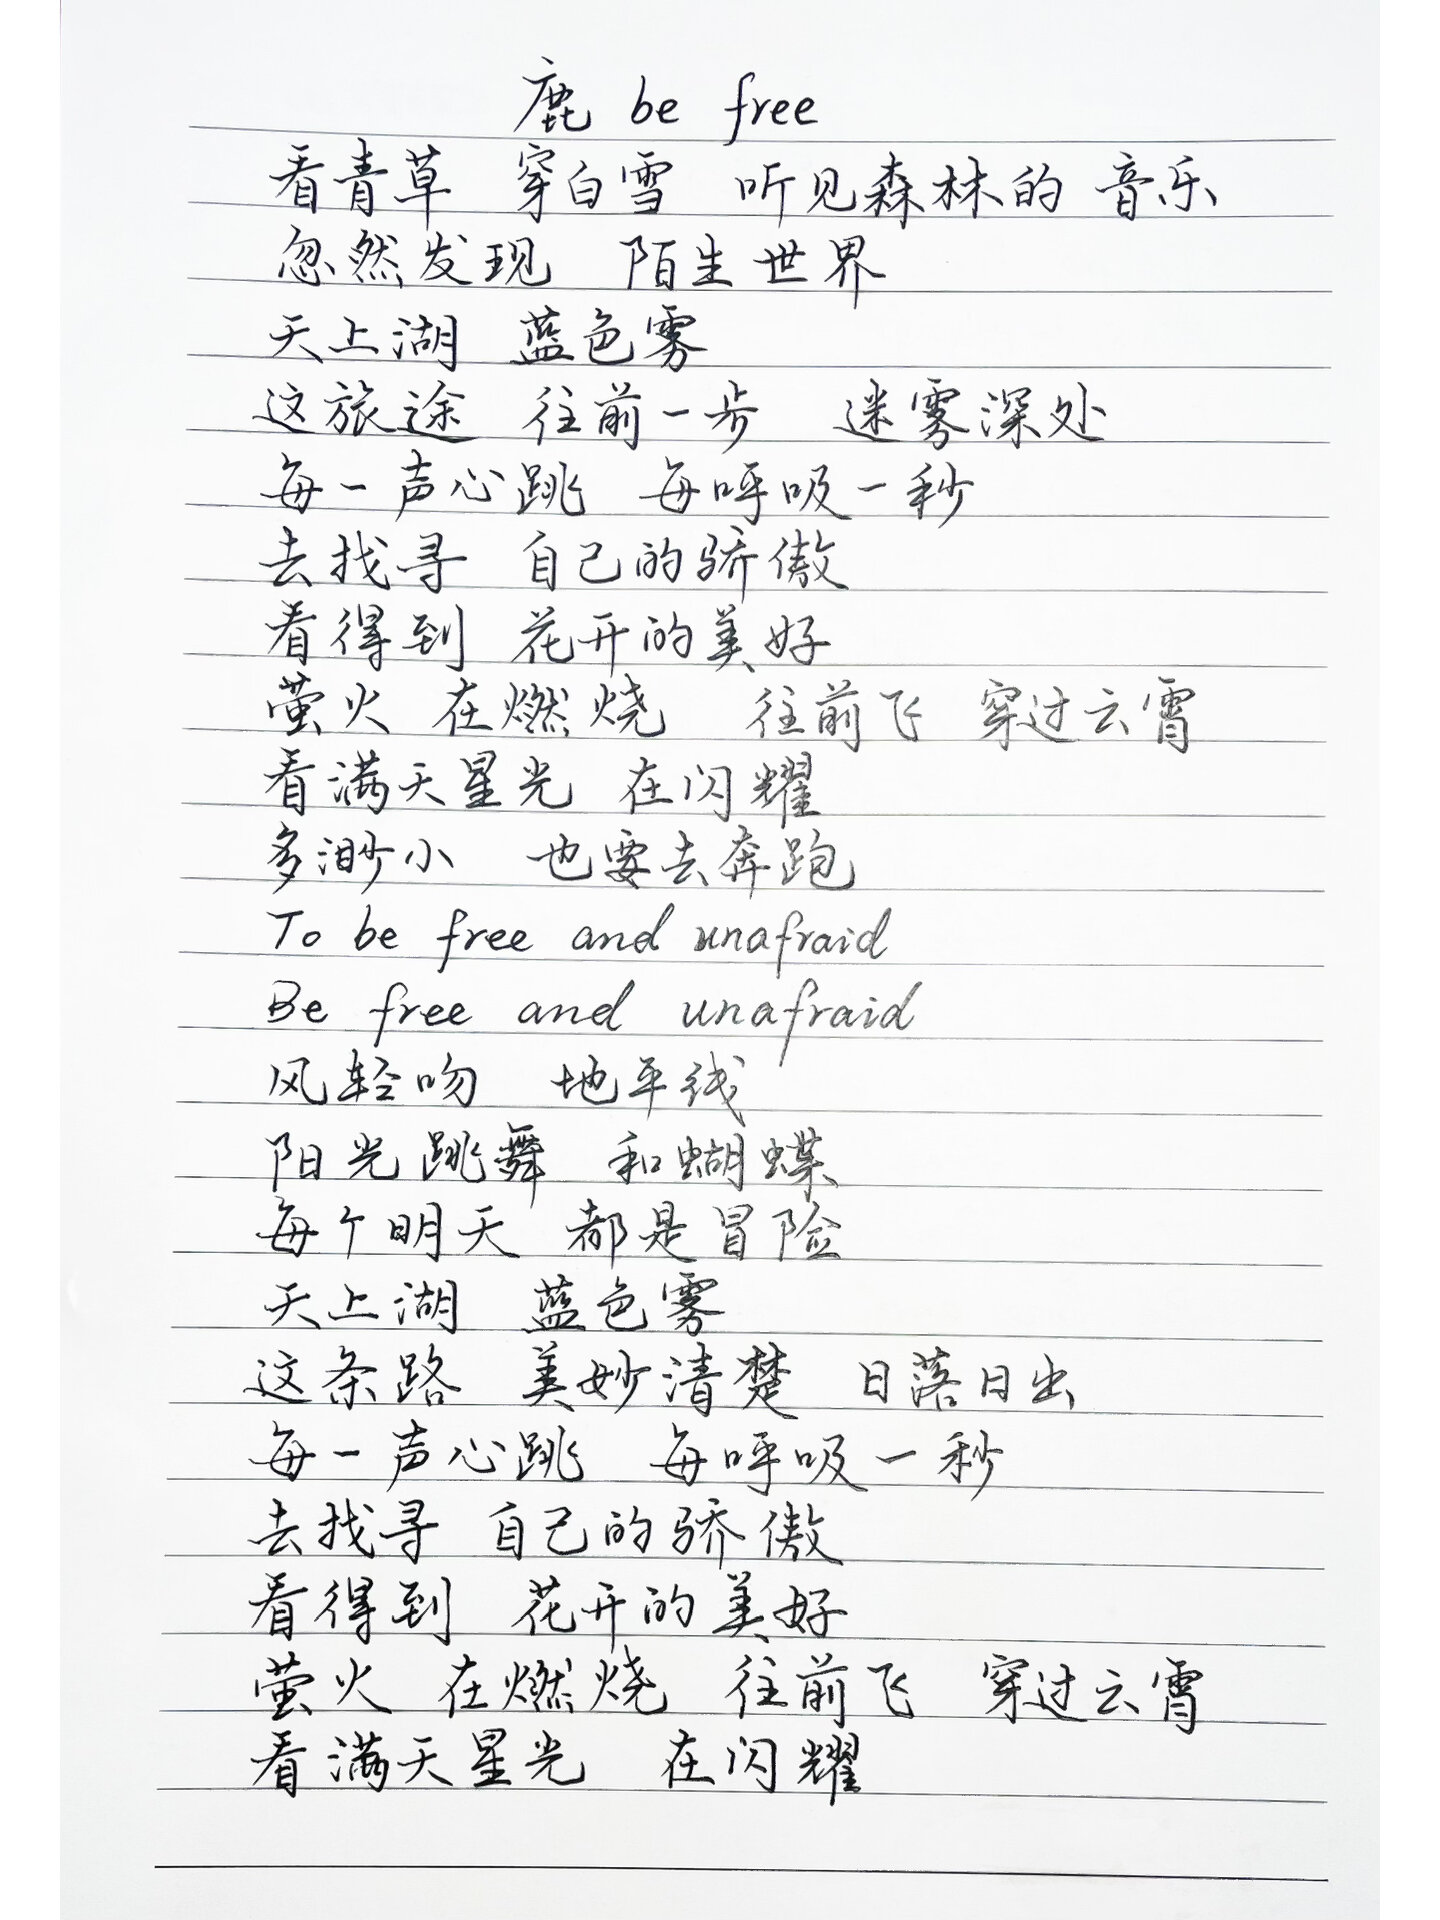 鹿 be free
看青草 穿白雪 听见森林的 音乐
忽然发现 陌生世界
天上湖 蓝色雾
这旅途 往前一步 迷雾深处
每一声心跳 每呼吸一秒
去找寻 自己的骄傲
看得到 花开的美好
萤火 在燃烧 往前飞 穿过云霄
看满天星光 在闪耀
多渺小 也要去奔跑
To be free and unafraid
Be free and unafraid
风轻吻 地平线
阳光跳舞 和蝴蝶
每个明天 都是冒险
天上湖 蓝色雾
这条路 美妙清楚 日落日出
每一声心跳 每呼吸一秒
去找寻 自己的骄傲
看得到 花开的美好
萤火 在燃烧 往前飞 穿过云霄
看满天星光 在闪耀